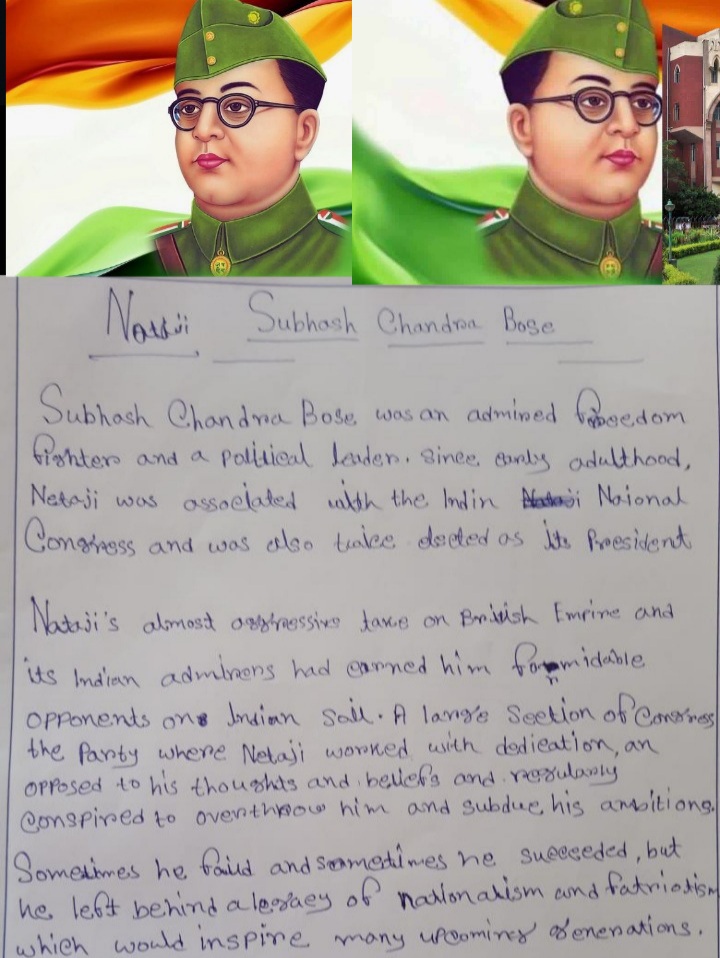 Netaji Subhash Chandra Bose
Subhash Chandra Bose was an admired freedom
fighters and a political leader. Since early adulthood,
Netaji was associated with the Indin Naional
Congress and was also twice elected as its President
Nataji's almost aggressive take on British Empire and
its Indian admirers had earned him formidable
opponents on Indian Soil. A large Section of Congress
the Party where Netaji worked with dedication, an
opposed to his thoughts and beliefs and regularly
conspired to overthrow him and subdue his ambitions.
Sometimes he faild and sometimes he succeeded, but
he left behind a legacy of nationalism and Patriotism
which would inspire many upcoming generations.